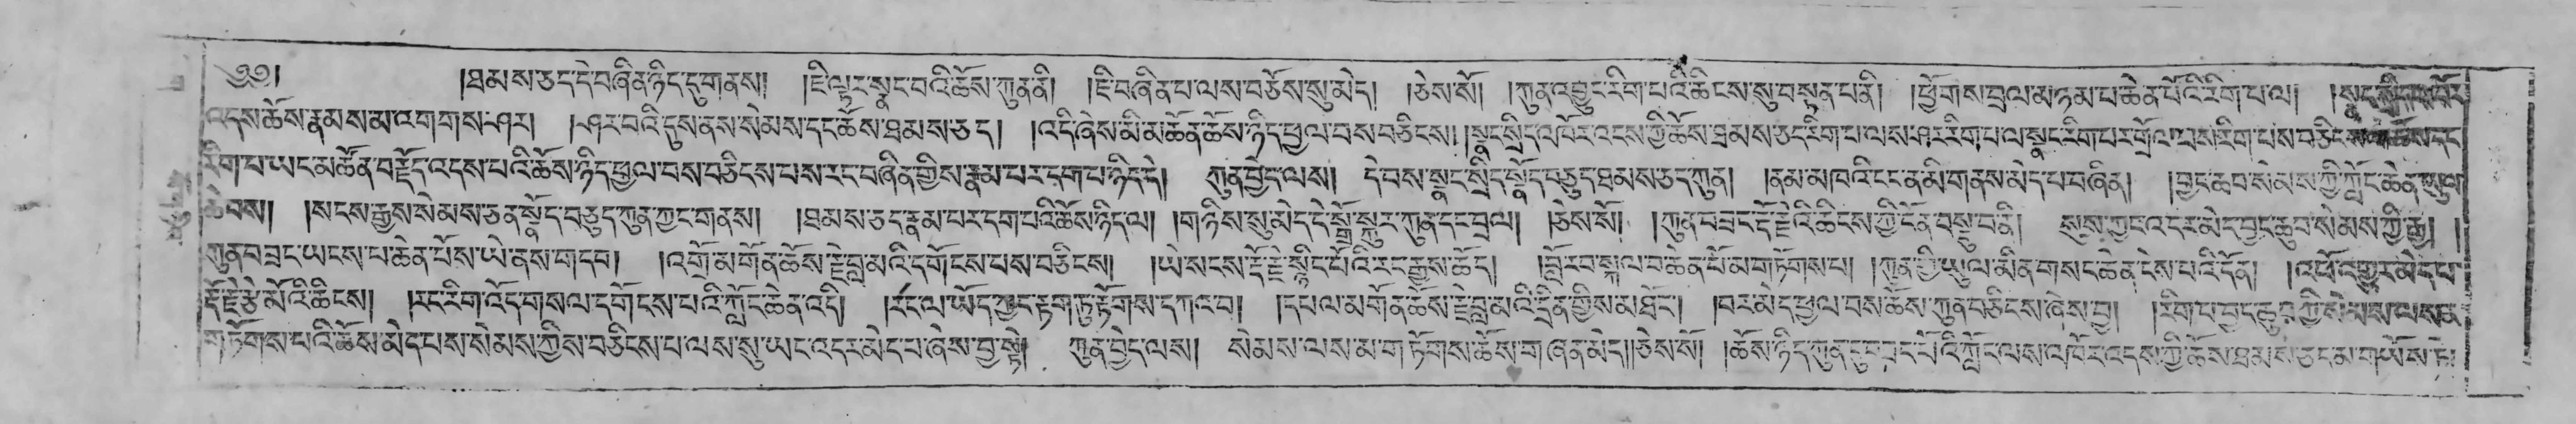 ༄༅། །ཐམས་ཅད་དེ་བཞིན་ཉིད་དུ་གནས། །ཇི་ལྟར་སྣང་བའི་ཆོས་ཀུན་ནི། །ཇི་བཞིན་པ་ལས་བཅོས་སུ་མེད། །ཅེས་སོ། །ཀུན་འབྱུང་རིག་པའི་ཆིངས་སུ་བསྟན་པ་ནི། །ཕྱོགས་བྲལ་མ་ཉམ་པ་ཆེན་པོའི་རིག་པ་ལ། །སྣང་སྲིད་
འདས་ཆོས་རྣམས་མ་འགགས་ཤར། །ཤར་བའི་དུས་ནས་སེམས་དང་ཆོས་ཐམས་ཅད། །འདི་ཞེས་མི་མཚོན་ཆོས་ཉིད་ཕྱལ་བས་བཅིངས། །སྣང་སྲིད་འཁོར་འདས་ཀྱི་ཆོས་ཐམས་ཅད་རིག་པ་ལས་ཤར་རིག་པ་ལ་སྣང་རིག་པར་གྲོལ་བས་རིག་པས་བཅིངས་
རིག་པ་ཡང་མཚོན་བརྗོད་འདས་པའི་ཆོས་ཉིད་ཕྱལ་བས་བཅིངས་པས་རང་བཞིན་གྱིས་རྣམ་པར་དག་པ་ཉིད་དེ། ཀུན་བྱེད་ལས། དེ་བས་སྣང་སྲིད་སྣོད་བཅུད་ཐམས་ཅད་ཀུན། །ནམ་མཁའི་ངང་ན་མི་གནས་མེད་པ་བཞིན། །བྱང་ཆུབ་སེམས་ཀྱི་ཀློང་ཆེན་
ཆེ་བས། །སངས་རྒྱས་སེམས་ཅན་སྣོད་བཅུད་ཀུན་ཀྱང་གནས། །ཐམས་ཅད་རྣམ་པར་དག་པའི་ཆོས་ཉིད་ལ། །གཉིས་སུ་མེད་དེ་སྒྲོ་སྐུར་ཀུན་དང་བྲལ། །ཅེས་སོ། །ཀུན་བཟང་རྡོ་རྗེའི་ཆིངས་ཀྱི་དོན་བསྡུ་བ་ནི། སུས་ཀྱང་འདར་མེད་བྱང་ཆུབ་སེམས་ཀྱི་རྒྱ། །
ཀུན་བཟང་ཡངས་པ་ཆེན་པོས་ཡེ་ནས་གདབ། །འགྲོ་མགོན་ཆོས་རྗེ་བླ་མའི་དགོངས་པས་བཅིངས། །ཡེ་སངས་རྡོ་རྗེ་སྙིང་པོའི་རང་རྒྱས་ཆོད། །བློ་རབ་སྐལ་བ་ཆེན་པོ་མ་གཏོགས་པ། །ཀུན་གྱི་ཡུལ་མིན་གསང་ཆེན་ངེས་པའི་དོན། །འཕོ་འགྱུར་མེད་པ་
རྡོ་རྗེ་རྩེ་མོའི་ཆིངས། །རང་རིག་འོད་གསལ་དགོངས་པའི་ཀློང་ཆེན་འདི། །རང་ལ་ཡོད་ཀྱང་རྟག་ཏུ་རྟོགས་དཀའ་བ། །དཔལ་མགོན་ཆོས་རྗེ་བླ་མའི་དྲིན་གྱིས་མཐོང་། །བར་མེད་ཕྱལ་བས་ཆོས་ཀུན་བཅིངས་ཞེས་བྱ། །རིག་པ་བྱང་ཆུབ་ཀྱི་སེམས་ལས་
གཏོགས་པའི་ཆོས་མེད་པས་སེམས་ཀྱིས་བཅིངས་པ་ལས་སུ་ཡང་འདར་མེད་པ་ཞེས་བྱ་སྟེ། ཀུན་བྱེད་ལས། སེམས་ལས་མ་གཏོགས་ཆོས་གཞན་མེད། །ཅེས་སོ། །ཆོས་ཉིད་ཀུན་ཏུ་བཟང་པོའི་ཀློང་ལས་འཁོར་འདས་ཀྱི་ཆོས་ཐམས་ཅད་མ་གཡོས་ཏེ